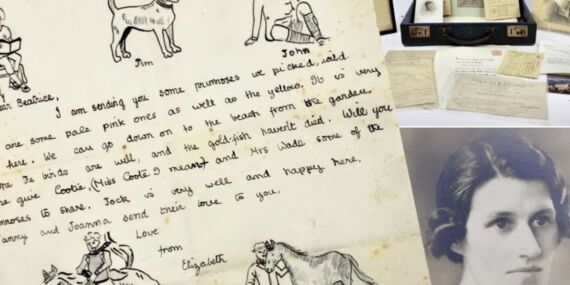 Jim
John
ear Beatrice,
I am sending you some primroses we picked, wild
are some pale pink ones as well as the yellow. It is very
here. We can go down on to the beach from the garden
he birds are well, and the gold-fish haven't died. Will you
e give Cootie, (Miss Coote I meant) and Mrs Wade some of the
mroses to share. Jock is very well and happy here.
anny and Joanna send their love to you.
Love
from
Elizabeth